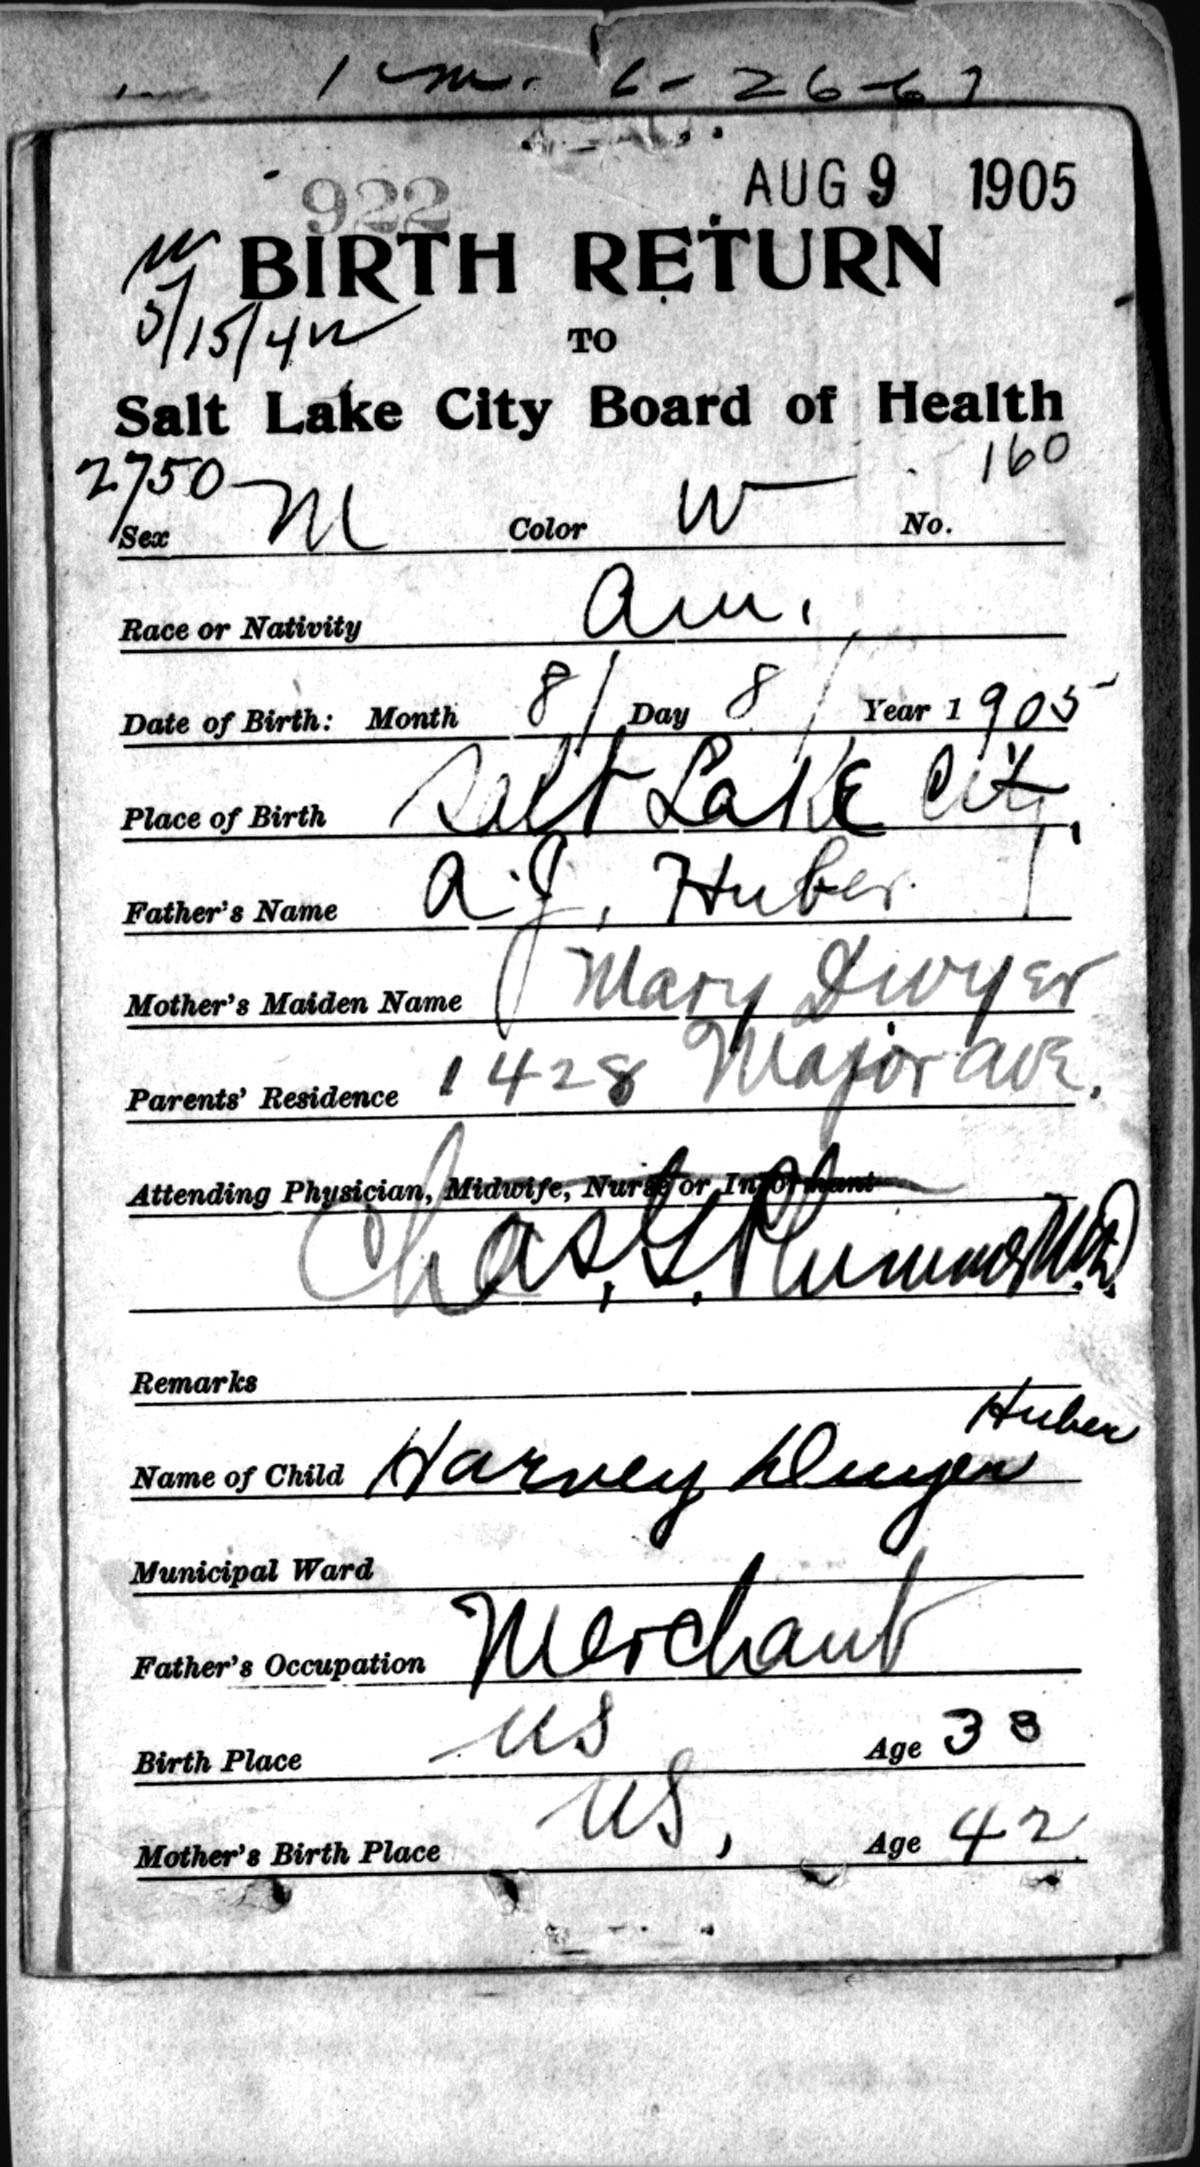 6-26-67
922 AUG 9 1905
BIRTH RETURN
5/15/42
TO
Salt Lake City Board of Health
2750 160
Sex M Color W No.
Race or Nativity Am.
Date of Birth: Month 8/ Day 8/ Year 1905
Place of Birth Salt Lake City,
Father's Name A. J. Huber
Mother's Maiden Name Mary Dwyer
Parents' Residence 1428 Major Ave.
Attending Physician, Midwife, Nurse or Informant
Chas. G. Plummer M.D.
Remarks
Huber
Name of Child Harvey Dwyer
Municipal Ward
Father's Occupation Merchant
Birth Place US Age 38
Mother's Birth Place US, Age 42